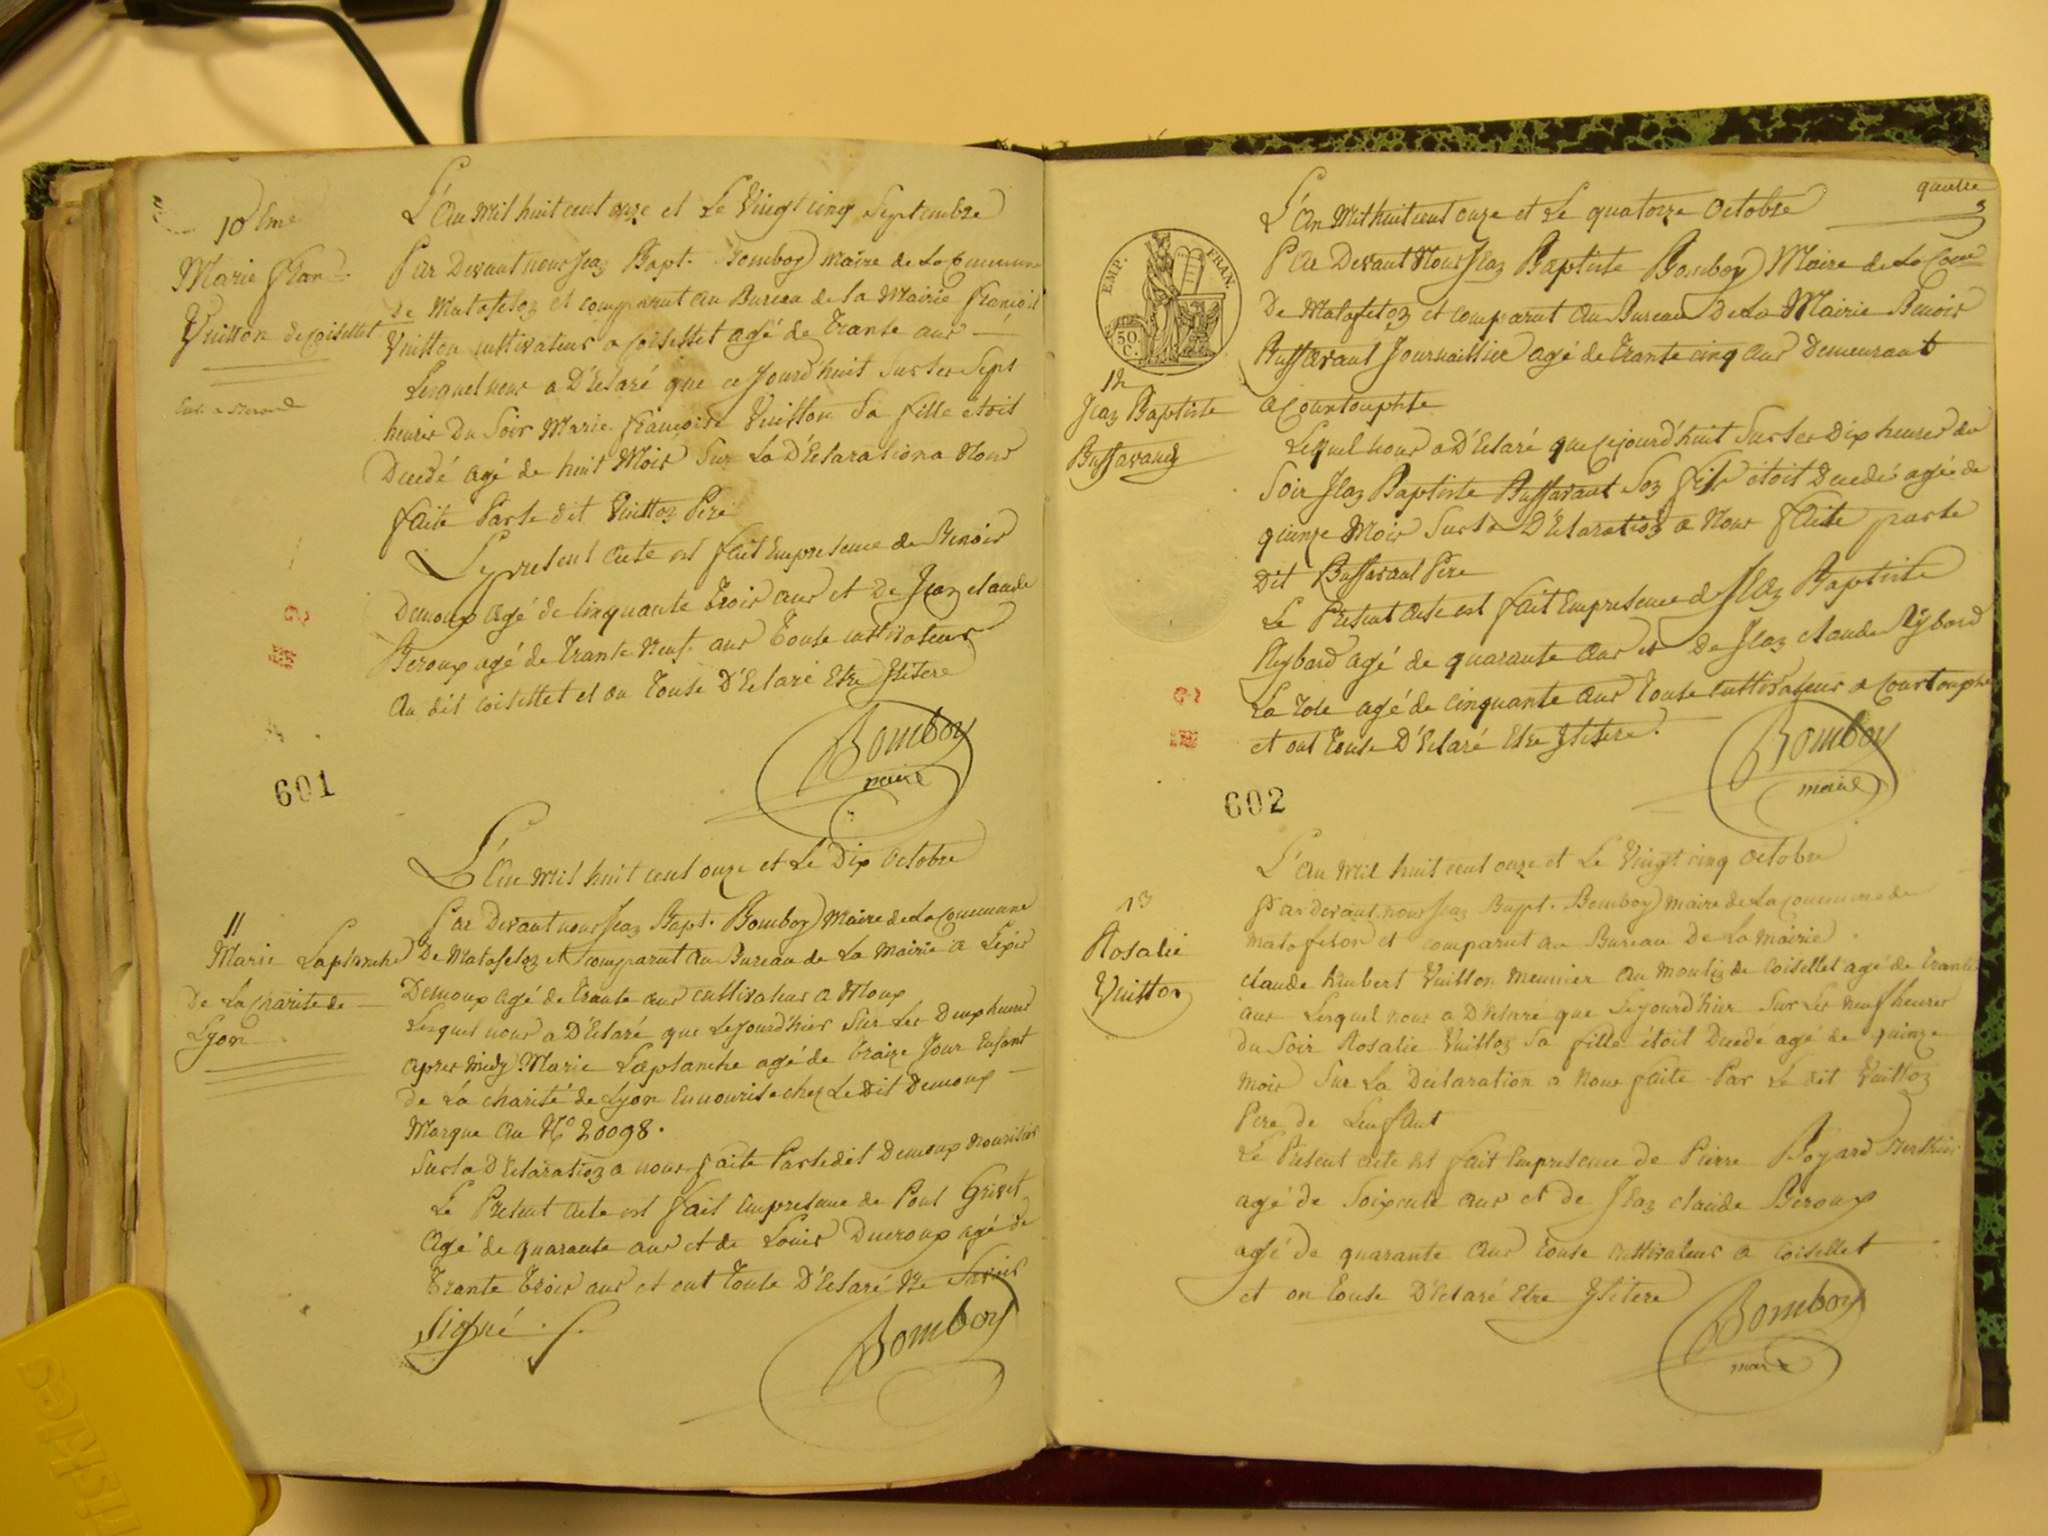 10 eme
Marie Fran.
Vuitton de Coisellet
L'an mil huit cent onze et Le Vingt cinq Septembre
Par Devant nous Jean Bapt. Bomboy maire de La Commune
de Matafelon et comparut au Bureau de la Mairie François
Vuitton cultivateur a Coisellet agé de Trante ans
Lequel nous a D'Eclaré que ce Jourd'huit sur les Sept
heures Du Soir Marie françoise Vuitton Sa fille étoit
Décédé agé de huit Mois Sur La D'Eclaration a Nous
faite Par le dit Vuitton Pere
Le present acte est fait En presence de Benoit
Demoux agé de Cinquante trois ans et De Jean claude
Beroux agé de Trante Neuf ans Touse cultivateurs
Au dit coisellet et on Touse D'Eclaré Etre Ilitere
Bomboy
maire
601
11
Marie Laplanche
De La Charité de
Lyon
L'An mil huit cent onze et Le Dix Octobre
Par Devant nous Jean Bapt. Bomboy Maire de La Commune
De Matafelon et comparut au Bureau de La Mairie
Demoux agé de Trante ans cultivateur a
Lequel nous a D'Eclaré que Le jourd'hier Sur Les Deux heures
apres midy Marie Laplanche agé de Traize Jour Enfant
de La charité de Lyon En nourise chez Le Dit Demoux
Marque au No 20098.
Sur la D'Eclaration a nous faite Par le dit Demoux Nourisier
Le Present acte est fait En presence de Poul Grivet
Agé de quarante ans et de Louis Ducroux agé de
Trante Trois ans et ont Touse D'Eclaré Ne Savoir
Signé
Bomboy
quatre
EMP. FRAN.
50 C.
12
Jean Baptiste
Buffavand
L'An Mil huit cent onze et Le quatorze Octobre
Par Devant Nous Jean Baptiste Bomboy Maire de La Com
De Matafelon et comparut au Bureau De La Mairie Benoit
Buffavant Journaillier agé de Trante cinq ans Demeurant
a Courtouphle
Lequel nous a D'Eclaré que ce jourd'huit Sur les Dix heures du
Soir Jean Baptiste Buffavant Son fils étoit Décédé agé de
quinze Mois Sur la D'Eclaration a Nous faite par le
Dit Buffavant Pere
Le Present acte est fait En presence de Jean Baptiste
Reybard agé de quarante ans et De Jean claude Reybard
La agé de cinquante ans Touse cultivateurs a Courtouphle
et ont Touse D'Eclaré Etre Ilitere.
Bomboy
maire
602
13
Rosalie
Vuitton
L'an mil huit cent onze et Le Vingt cinq octobre
Par devant nous Jean Bapt. Bomboy maire de La commune de
matafelon et comparut au Bureau De La mairie.
claude humbert Vuitton meunier au moulin de Coisellet agé de Trante
ans Lequel nous a D'Eclaré que Le jourd'hier Sur Les neuf heures
du Soir Rosalie Vuitton Sa fille étoit Décédé agé de quinze
mois Sur La Déclaration a Nous faite Par Le dit Vuitton
Pere de Lenfant
Le Present acte est fait En presence de Pierre Boyard
agé de Soixente ans et de Jean claude Beroux
agé de quarante ans touse cultivateurs a Coisellet
et on touse D'Eclaré Etre Ilitere
Bomboy
maire